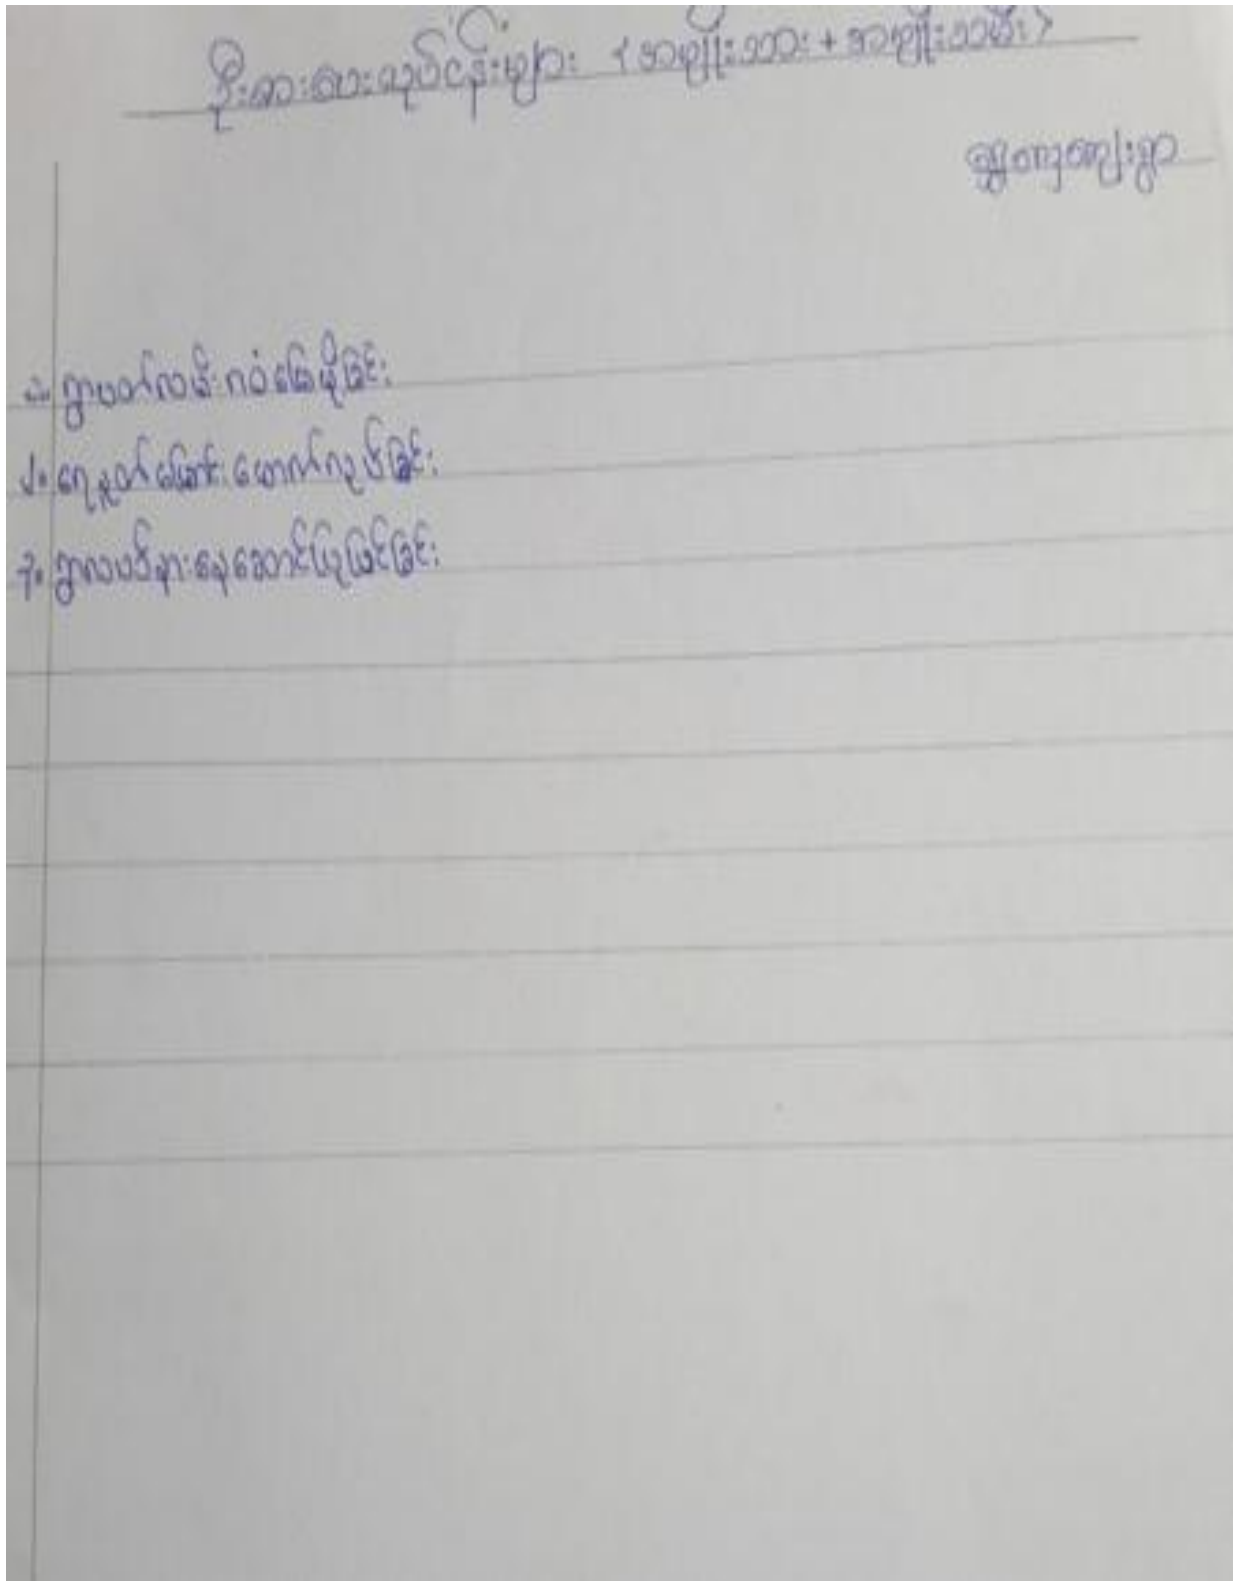 ဦးစားပေးလုပ်ငန်းများ <အမျိုးသား + အမျိုးသမီး>
ကျေးရွာ
၁။ ရွာပတ်လမ်း ဂဝံမြေဖို့ခြင်း
၂။ ရေနှုတ်မြောင်း ဖောက်လုပ်ခြင်း
၃။ ရွာလယ်နားနေဆောင်ပြုပြင်ခြင်း